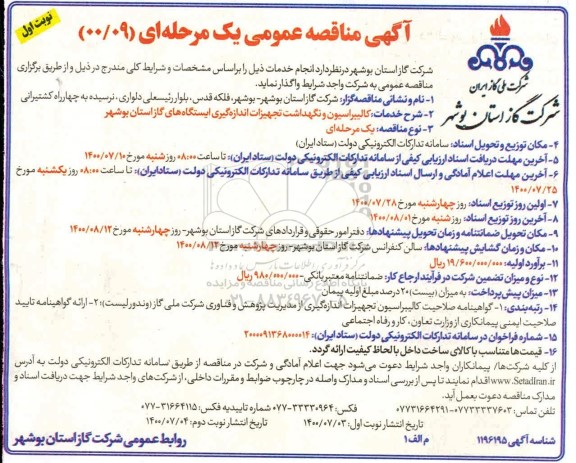 نوبت اول
آگهی مناقصه عمومی یک مرحله‌ای (۰۰/۰۹)
شرکت ملی گاز ایران
شرکت گاز استان بوشهر
شرکت گاز استان بوشهر درنظر دارد انجام خدمات ذیل را براساس مشخصات و شرایط کلی مندرج در ذیل و از طریق برگزاری
مناقصه عمومی به شرکت واجد شرایط واگذار نماید.
۱- نام و نشانی مناقصه‌گزار: شرکت گاز استان بوشهر- بوشهر، فلکه قدس، بلوار رئیسعلی دلواری، نرسیده به چهارراه کشتیرانی
۲- شرح خدمات: کالیبراسیون و نگهداشت تجهیزات اندازه‌گیری ایستگاه‌های گاز استان بوشهر
۳- نوع مناقصه: یک مرحله‌ای
۴- مکان توزیع و تحویل اسناد: سامانه تدارکات الکترونیکی دولت (ستاد ایران)
۵- آخرین مهلت دریافت اسناد ارزیابی کیفی از سامانه تدارکات الکترونیکی دولت (ستاد ایران): تا ساعت ۰۸:۰۰ روز شنبه مورخ ۱۴۰۰/۰۷/۱۰
۶- آخرین مهلت اعلام آمادگی و ارسال اسناد ارزیابی کیفی از طریق سامانه تدارکات الکترونیکی دولت (ستاد ایران): تا ساعت ۰۸:۰۰ روز یکشنبه مورخ
۱۴۰۰/۰۷/۲۵
۷- اولین روز توزیع اسناد: روز چهارشنبه مورخ ۱۴۰۰/۰۷/۲۸
۸- آخرین روز توزیع اسناد: روز شنبه مورخ ۱۴۰۰/۰۸/۰۱
۹- مکان تحویل ضمانتنامه و زمان تحویل پیشنهادها: دفتر امور حقوقی و قراردادهای شرکت گاز استان بوشهر- روز چهارشنبه مورخ ۱۴۰۰/۰۸/۱۲
۱۰- مکان و زمان گشایش پیشنهادها: سالن کنفرانس شرکت گاز استان بوشهر- روز چهارشنبه مورخ ۱۴۰۰/۰۸/۱۲
۱۱- برآورد اولیه: ۱۹/۶۰۰/۰۰۰/۰۰۰ ریال
۱۲- نوع و میزان تضمین شرکت در فرآیند ارجاع کار: ضمانتنامه معتبر بانکی- ۹۸۰/۰۰۰/۰۰۰ ریال
۱۳- میزان پیش‌پرداخت: به میزان (بیست) ۲۰ درصد مبلغ اولیه پیمان
۱۴- رتبه‌بندی: ۱- گواهینامه صلاحیت کالیبراسیون تجهیزات اندازه‌گیری از مدیریت پژوهش و فناوری شرکت ملی گاز (وندور لیست)؛ ۲- ارائه گواهینامه تایید
صلاحیت ایمنی پیمانکاری از وزارت تعاون، کار و رفاه اجتماعی
۱۵- شماره فراخوان در سامانه تدارکات الکترونیکی دولت (ستاد ایران): ۲۰۰۰۰۹۱۳۶۸۰۰۰۰۱۴
۱۶- قیمت‌ها متناسب با کالای ساخت داخل با لحاظ کیفیت ارائه گردد.
از کلیه شرکت‌ها/ پیمانکاران واجد شرایط دعوت می‌شود جهت اعلام آمادگی و شرکت در مناقصه از طریق "سامانه تدارکات الکترونیکی دولت به آدرس
www.SetadIran.ir" اقدام نمایند تا پس از بررسی اسناد و مدارک واصله در چارچوب ضوابط و مقررات داخلی، از شرکت‌های واجد شرایط جهت دریافت اسناد و
مدارک مناقصه دعوت بعمل آید.
تلفن تماس: ۰۷۷۳۳۳۳۷۶۰۳-۰۷۷۳۱۶۶۴۲۹۱ فکس: ۳۳۳۳۰۹۶۴-۰۷۷ شماره تاییدیه فکس: ۳۱۶۶۴۱۱۵-۰۷۷
تاریخ انتشار نوبت اول: ۱۴۰۰/۰۷/۰۳ تاریخ انتشار نوبت دوم: ۱۴۰۰/۰۷/۰۴
شناسه آگهی ۱۱۹۶۱۹۵ م الف ۱ روابط عمومی شرکت گاز استان بوشهر